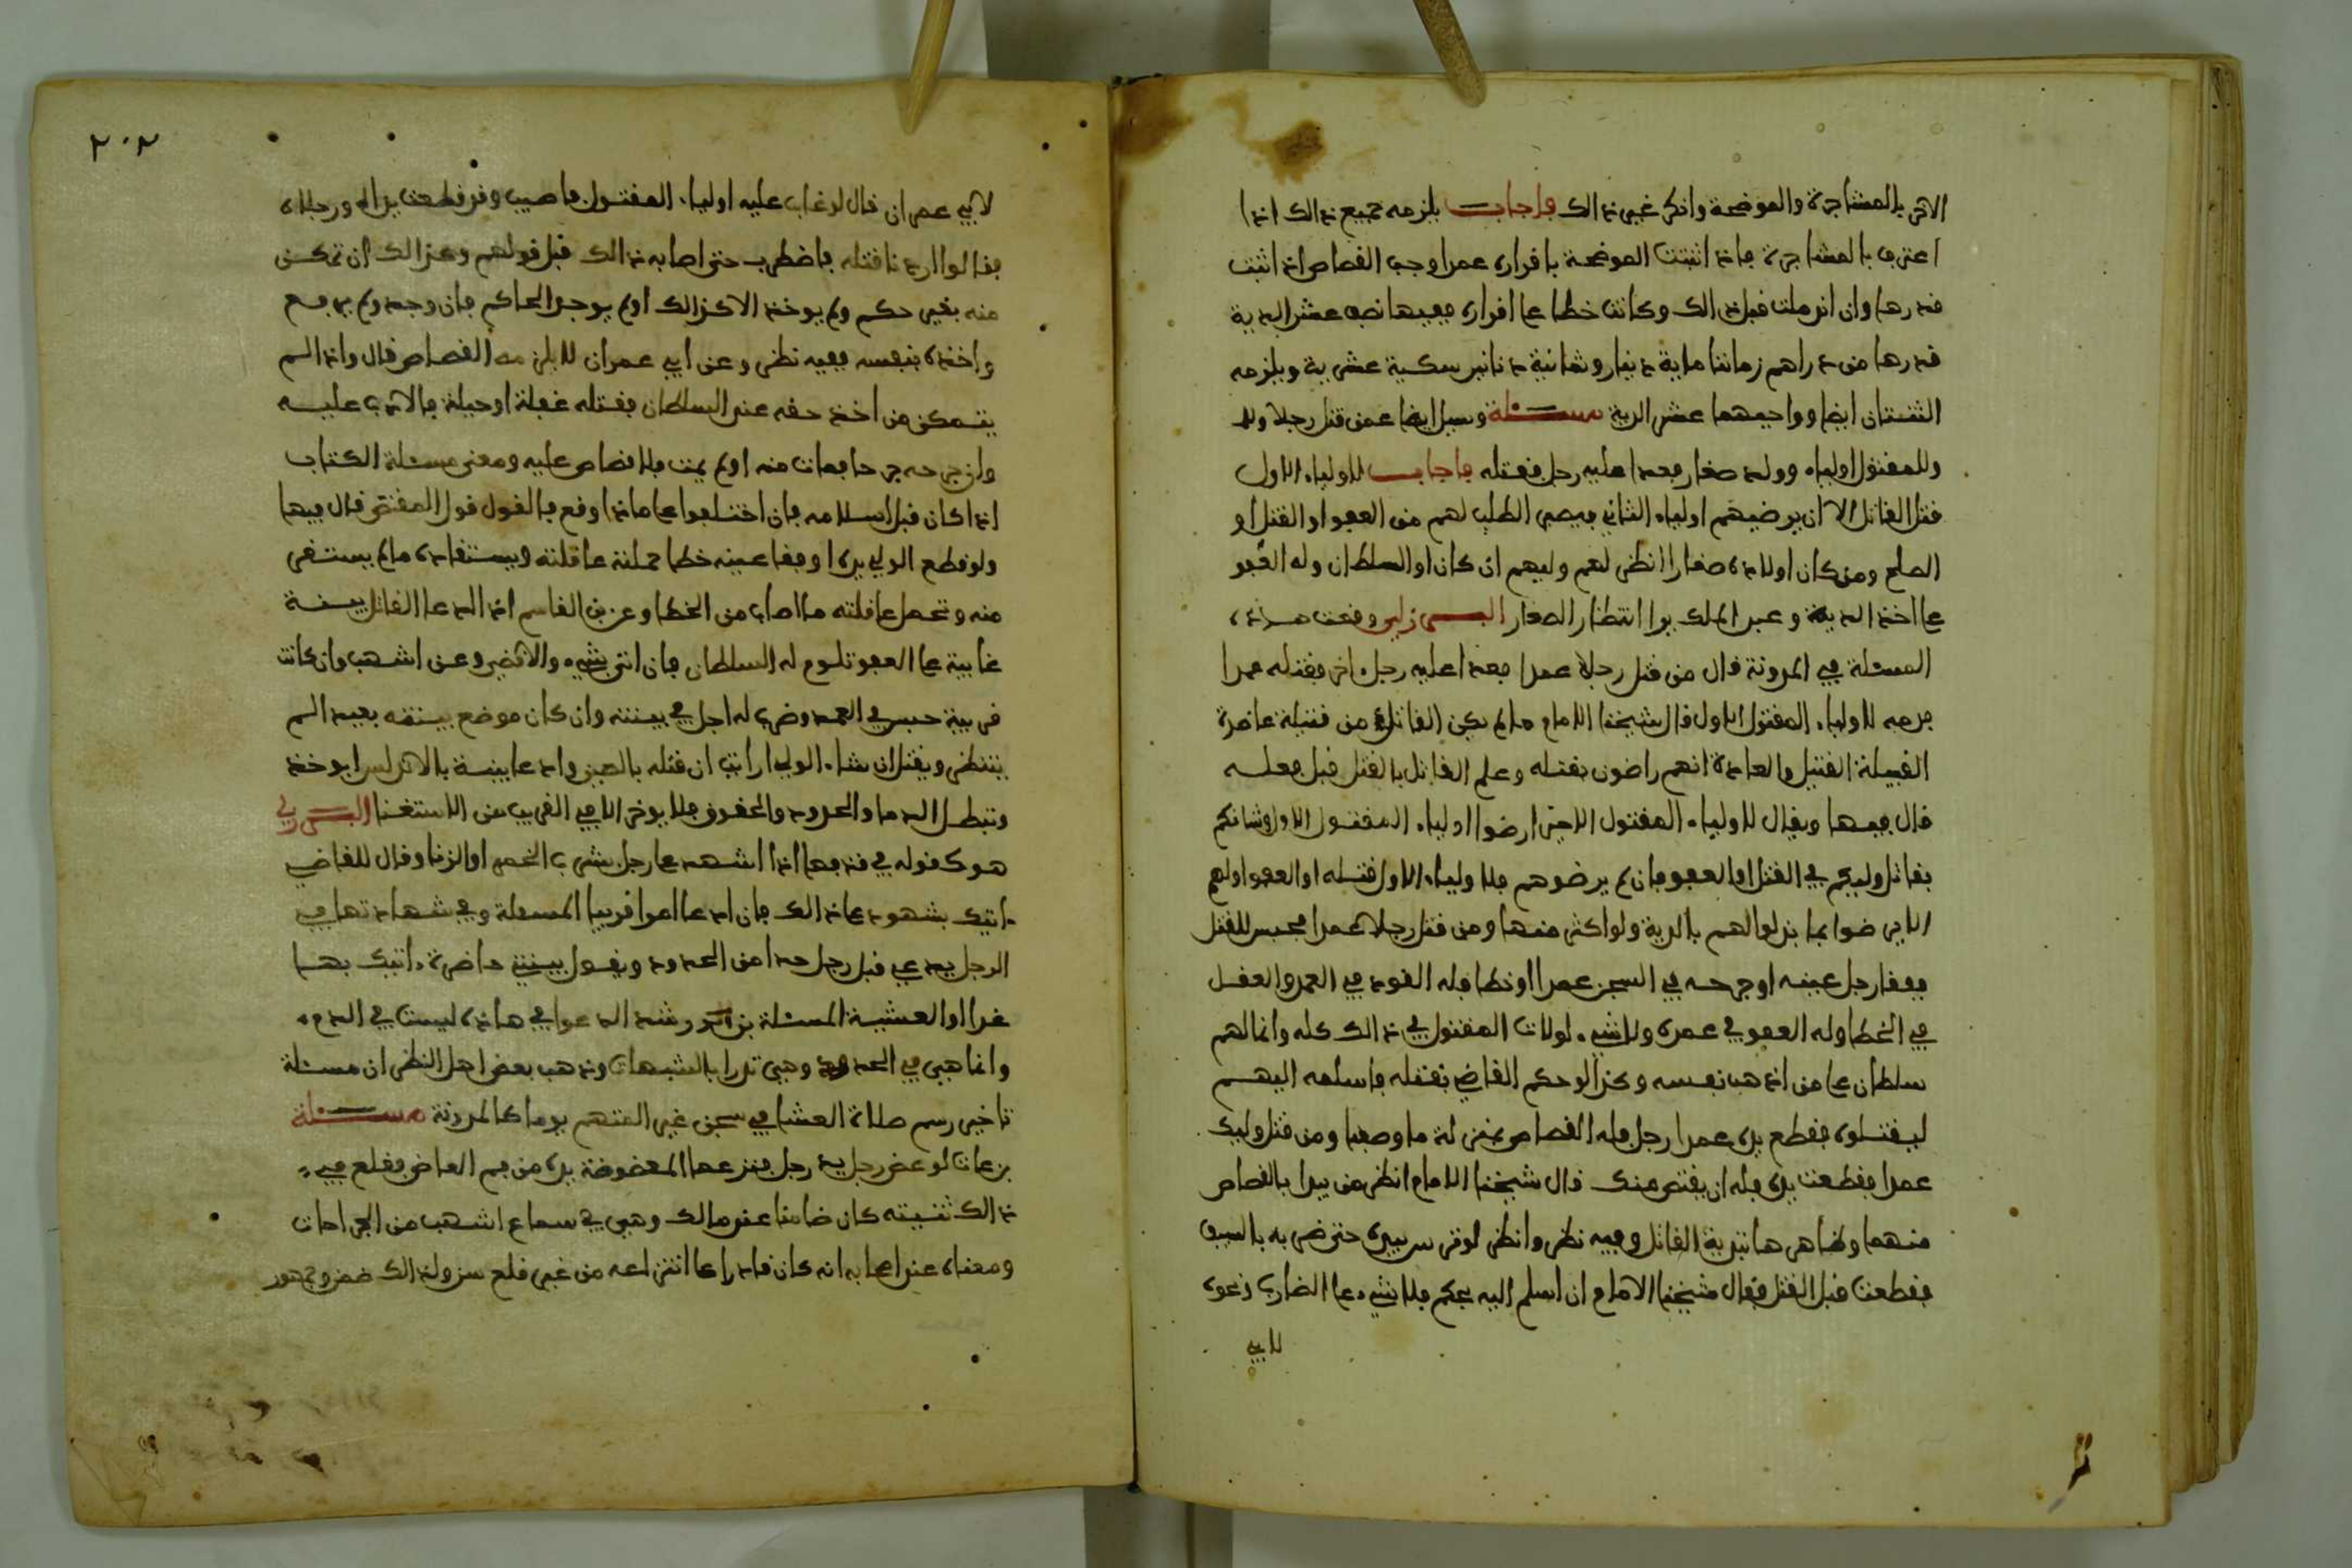 الاثر بالمشاجرة والموضحة وانكر غير ذالك فاجاب يلزمه جميع ذالك اذا
اعترف بالمشاجرة فاذا اثبتت الموضحة باقراره عمدا وجب القصاص اذا اثبت
قدرها وان اندملت قبل ذالك وكانت خطا على اقراره ففيها نصف عشر الدية
قدرها من دراهم زماننا ماية دينار وثمانية دنانير سكية عشرية ويلزمه
الثنتان ايضا وواجبهما عشر الدية مسئلة وسئل ايضا عمن قتل رجلا وله
وللمقتول اولياء وولد صغار فعدا عليه رجل فقتله فاجاب لاولياء الاول
قتل القاتل الا ان يرضيهم اولياء الثاني فيصير الطلب لهم من العفو او القتل او
الصلح ومن كان اولاده صغارا انظر لهم وليهم ان كان او السلطان وله العفو
على اخذ الدية وعبد الملك يرا انتظار الصغار البرزلي وقعت هذه
المسئلة في المدونة قال من قتل رجلا عمدا فعدا عليه رجل اخر فقتله عمدا
فدمه لاولياء المقتول الاول قال شيخنا الامام ما لم يكن القاتل من قبيلة عاصرة
القبيلة القتيل والعادة انهم راضون بقتله وعلم القاتل بالقتل قبل فعله
قال فيها ويقال لاولياء المقتول الاخير ارضوا اولياء المقتول الاول وشانكم
بقاتل وليكم في القتل او العفو فان لم يرضوهم فلاولياء الاول قتله او العفو ولهم
الا يرضوا بما بذلوا لهم بالدية ولو اكثر منها ومن قتل رجلا عمدا فحبس للقتل
ففقا رجل عينه او جرحه في السجن عمدا او خطا فله القود في العمد والعقل
في الخطا وله العفو في عمده ولا شيء لولاة المقتول في ذالك كله وانما لهم
سلطان على من اذهب نفسه وكذا لو حكم القاضي بقتله فاسلمه اليهم
ليقتلوه فقطع يده عمدا رجل فله القصاص بمنزلة ما وصفنا ومن قتل وليك
عمدا فقطعت يده فله ان يقتص منك قال شيخنا الامام انظر من يبدا بالقصاص
منهما وظاهرها تبدية القاتل وفيه نظر وانظر لو فر سيده حتى ضربه بالسيف
فقطعت قبل القتل فقال شيخنا الامام ان اسلم اليه بحكم فلا شيء على الضارب ونحوه
لابي
٢٠٢
لابي عمران قال لو غاب عليه اولياء المقتول فاصيب وقد قطعت يداه ورجلاه
فقالوا اردنا قتله فاضطرب حتى اصابه ذالك قبل قولهم وكذالك ان تمكن
منه بغير حكم ولم يوخذ الا كذالك او لم يوجد الحاكم فان وجد ولم يرفع
واخذه بنفسه ففيه نظر وعن ابي عمران لا يلزمه القصاص قال واذا لم
يتمكن من اخذ حقه عند السلطان فقتله غفلة او حيلة فالادب عليه
وان جرحه جرحا فمات منه او لم يمت فلا قصاص عليه ومعنى مسئلة الكتاب
اذا كان قبل اسلامه فان اختلفوا على ماذا وقع فالقول قول المقتص قال فيها
ولو قطع الولي يده او فقا عينه خطا حملته عاقلته ويستقاد له ما لم يستقد
منه وتحمل عاقلته ما اصاب من الخطا وعن ابن القاسم اذا ادعا القاتل بينة
غايبة على العفو تلوم له السلطان فان اتى بشيء والا قضي وعن اشهب وان كانت
قريبة حبس في العمد وضرب له اجل في بينته وان كان موضع بينته بعيد لم
ينتظر ويقتل ان شاء الولي ارايت ان قتله بالصين وادعا بينة بالاندلس ايوخذ
وتبطل الدما والحدود والحقوق فلا يوخر الا في القريب من الاستغنا البرزلي
هو كقوله في قذفها اذا شهد على رجل بشرب الخمر او الزنا وقال للقاضي
اتيك بشهود على ذالك فان ادعا امرا قريبا المسئلة وفي شهادتها في
الرجل يدعي قبل رجل حدا من الحدود ويقول بينتي حاضرة اتيك بها
غدا او العشية المسئلة بن رشد الدعوا في هاذه ليست في الدم
وانما هي في الحدود وهي تدرا بالشبهات وذهب بعض اهل النظر ان مسئلة
تاخير رسم صلاة العشا في سجن غير المتهم يوما كالمدونة مسئلة
بن عات لو عض رجل يد رجل فنزعها المعضوضة يده من فم العاض فقلع في
ذالك ثنيته كان ضامنا عند مالك وهي في سماع اشهب من الجراحات
ومعناه عند اصحابه انه كان قادرا على انتزاعه من غير قلع سنه ولذالك ضمن وجمهور